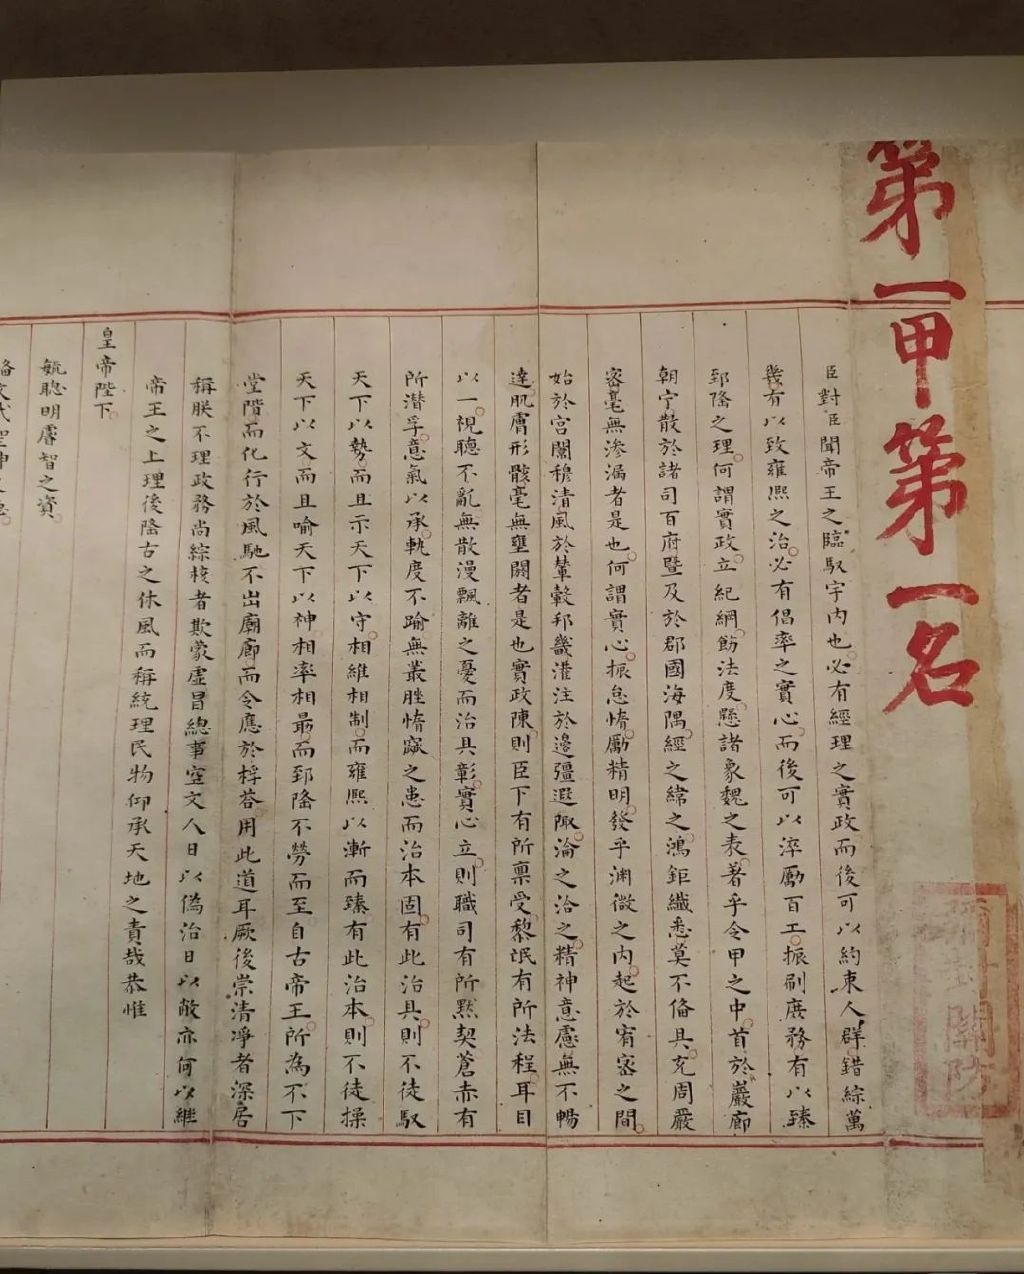 第一甲第一名
臣對臣聞帝王之臨馭宇内也必有經理之實政而後可以約束人群錯綜萬
幾有以致雍熙之治必有倡率之實心而後可以淬勵百工振刷庶務有以臻
郅隆之理何謂實政立紀綱飭法度懸諸象魏之表著乎令甲之中首於巖廊
朝宁散於諸司百府暨及於郡國海隅經之緯之鴻鉅纖悉莫不備具充周嚴
密毫無滲漏者是也何謂實心振怠惰勵精明發乎淵微之内起於宥密之間
始於宫闈穆清風於輦轂邦畿灌注於邊疆遐陬淪之洽之精神意慮無不暢
達肌膚形骸毫無壅閼者是也實政陳則臣下有所禀受黎氓有所法程耳目
以一視聽不亂無散漫飄離之憂而治具彰實心立則職司有所默契蒼赤有
所潜孚意氣以承軌度不踰無叢脞惰窳之患而治本固有此治具則不徒馭
天下以勢而且示天下以守相維相制而雍熙以漸而臻有此治本則不徒操
天下以文而且喻天下以神相率相最而郅隆不勞而至自古帝王所為不下
堂階而化行於風馳不出廟廊而令應於桴荅用此道耳厥後崇清凈者深居
稱朕不理政務尚綜核者欺蒙虚冒總事空文人日以偽治日以敝亦何以繼
帝王之上理後隆古之休風而稱統理民物仰承天地之責哉恭惟
皇帝陛下
毓聰明睿智之資